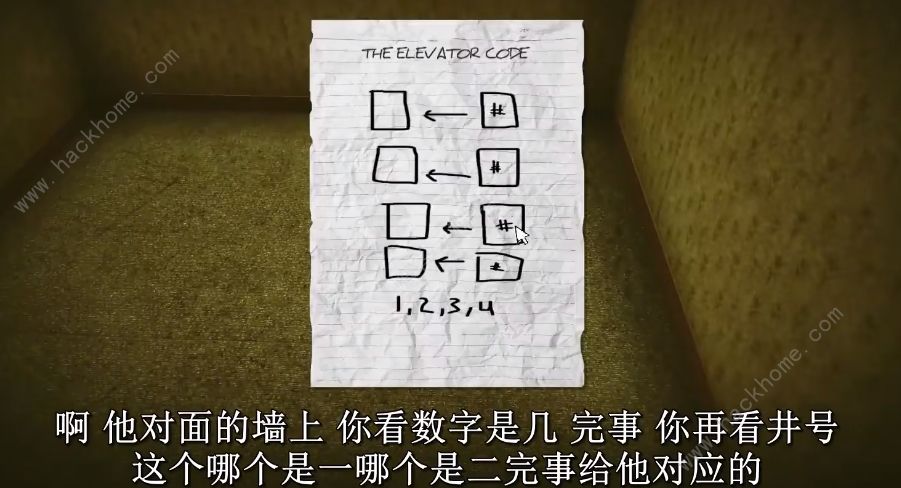 THE ELEVATOR CODE
#
#
#
#
1,2,3,4
www.hackhome.com
www.hackhome.com
啊 他对面的墙上 你看数字是几 完事 你再看井号
这个哪个是一哪个是二完事给他对应的